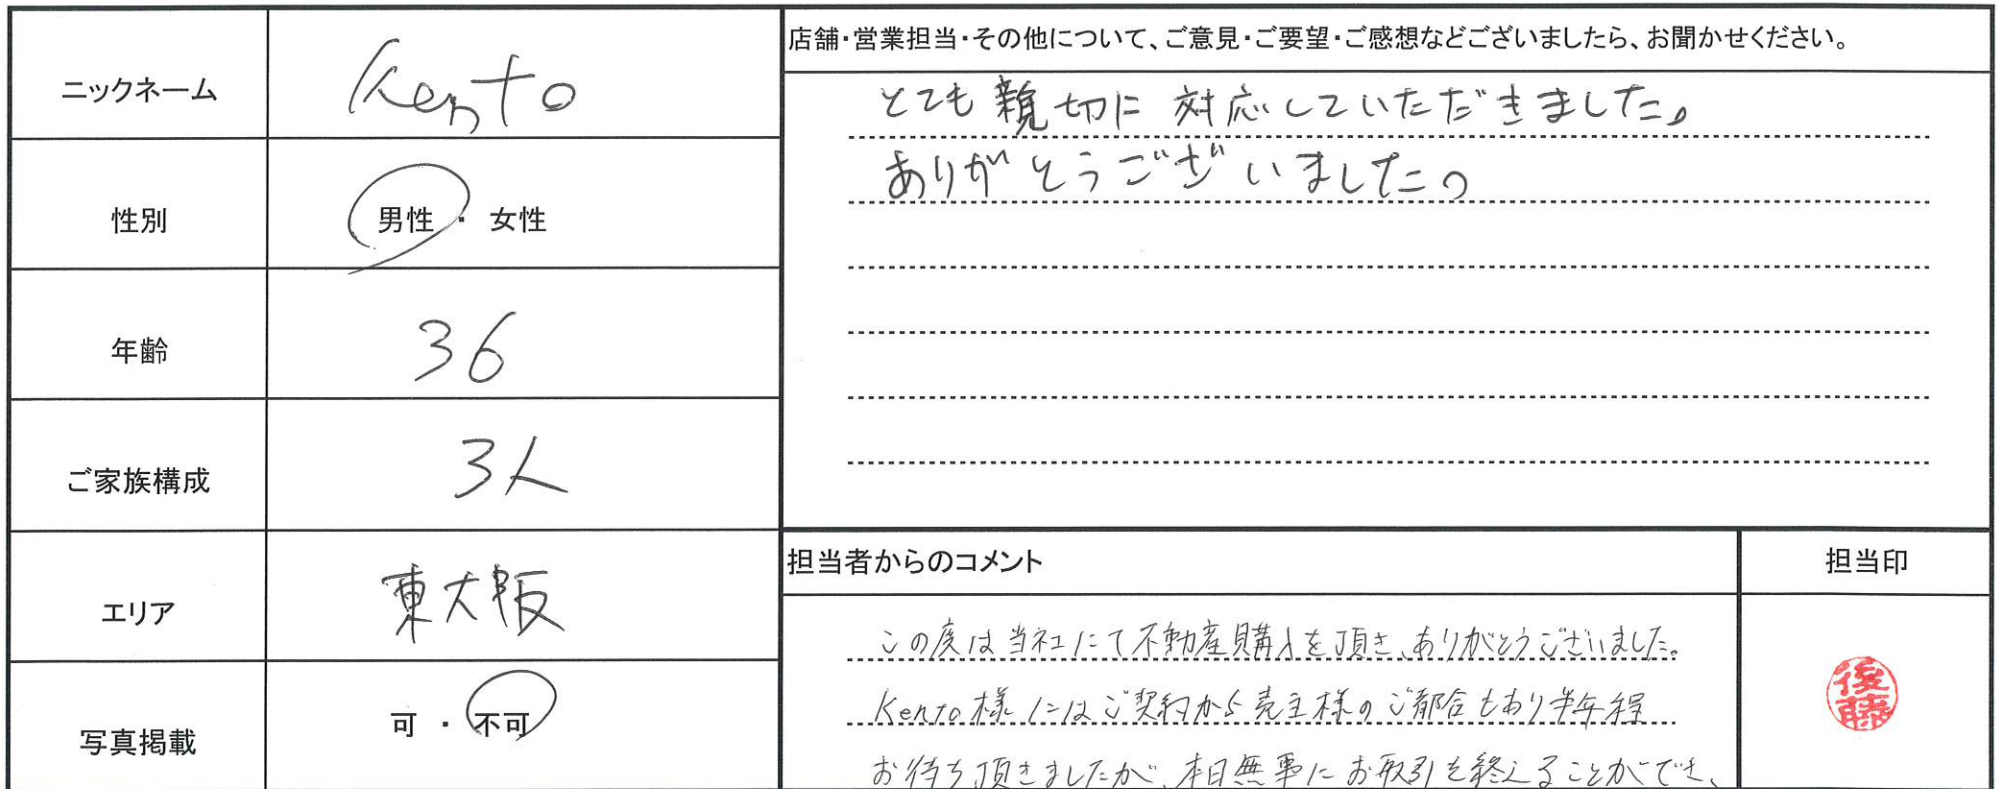 ニックネーム
Kento
性別
男性 ・ 女性
年齢
36
ご家族構成
3人
エリア
東大阪
写真掲載
可 ・ 不可
店舗・営業担当・その他について、ご意見・ご要望・ご感想などございましたら、お聞かせください。
とても親切に対応していただきました。
ありがとうございました。
担当者からのコメント
この度は当社にて不動産購入を頂き、ありがとうございました。
Kento様にはご契約から売主様のご都合もあり半年程
お待ち頂きましたが、本日無事にお取引を終えることができ、
担当印
後藤